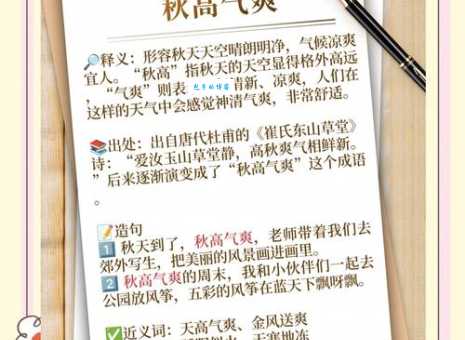 秋高气爽
释义：形容秋天天空晴朗明净，气候凉爽
宜人。“秋高”指秋天的天空显得格外高远
，“气爽”则表 清新、凉爽，人们在
这样的天气中会感觉神清气爽，非常舒适。
出处：出自唐代杜甫的《崔氏东山草堂》
诗：“爱汝玉山草堂静，高秋爽气相鲜新。
”后来逐渐演变成了“秋高气爽”这个成语
。
造句
1 秋天到了，秋高气爽，老师带着我们去
郊外写生，把美丽的风景画进画里。
2 秋高气爽的周末，我和小伙伴们一起去
公园放风筝，五彩的风筝在蓝天下飘呀飘。
近义词：天高气爽、金风送爽
天寒地冻